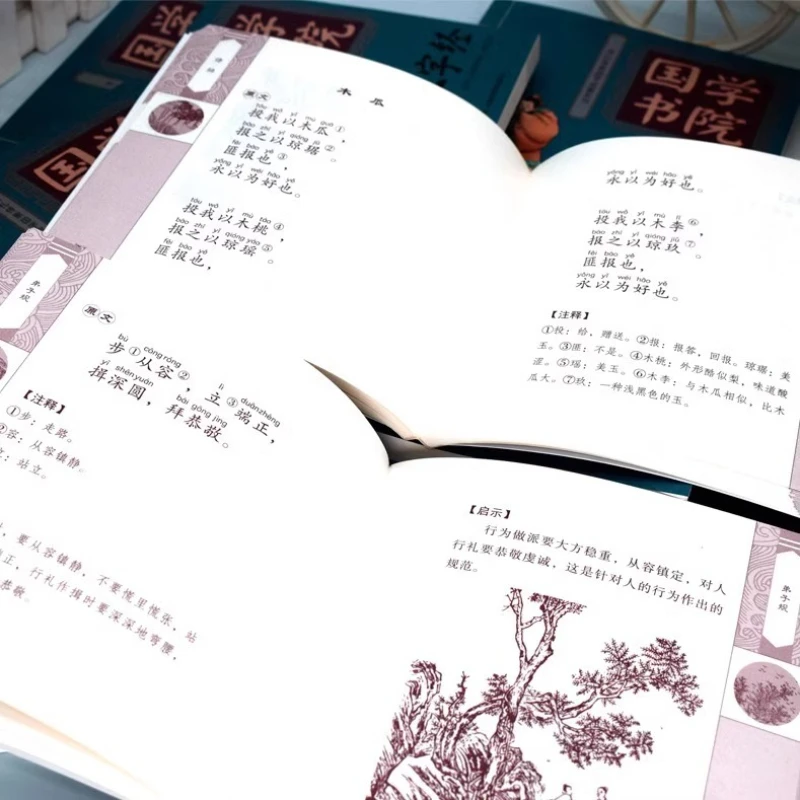 国学
国学
书院
国
学院
字经
国学
书院
诗经
木瓜
原文
tóu wǒ yǐ mù guā
投我以木瓜①，
bào zhī yǐ qióng jū
报之以琼琚②。
fěi bào yě
匪报也③，
yǒng yǐ wéi hǎo yě
永以为好也。
tóu wǒ yǐ mù táo
投我以木桃④，
bào zhī yǐ qióng yáo
报之以琼瑶⑤。
fěi bào yě
匪报也，
yǒng yǐ wéi hǎo yě
永以为好也。
tóu wǒ yǐ mù lǐ
投我以木李⑥，
bào zhī yǐ qióng jiǔ
报之以琼玖⑦。
fěi bào yě
匪报也，
yǒng yǐ wéi hǎo yě
永以为好也。
【注释】
①投：给，赠送。②报：报答，回报。琼琚：美
玉。③匪：不是。④木桃：外形酷似梨，味道酸
涩。⑤瑶：美玉。⑥木李：与木瓜相似，比木
瓜大。⑦玖：一种浅黑色的玉。
弟子规
原文
bù cóng róng lì duān zhèng
步①从容②，立③端正，
yī shēn yuán bài gōng jìng
揖深圆，拜恭敬。
【注释】
①步：走路。
②容：从容镇静。
：站立。
，要从容镇静，不要慌里慌张，站
正，行礼作揖时要深深地弯腰，
恭敬。
【启示】
行为做派要大方稳重，从容镇定，对人
行礼要恭敬虔诚，这是针对人的行为作出的
规范。
弟子规